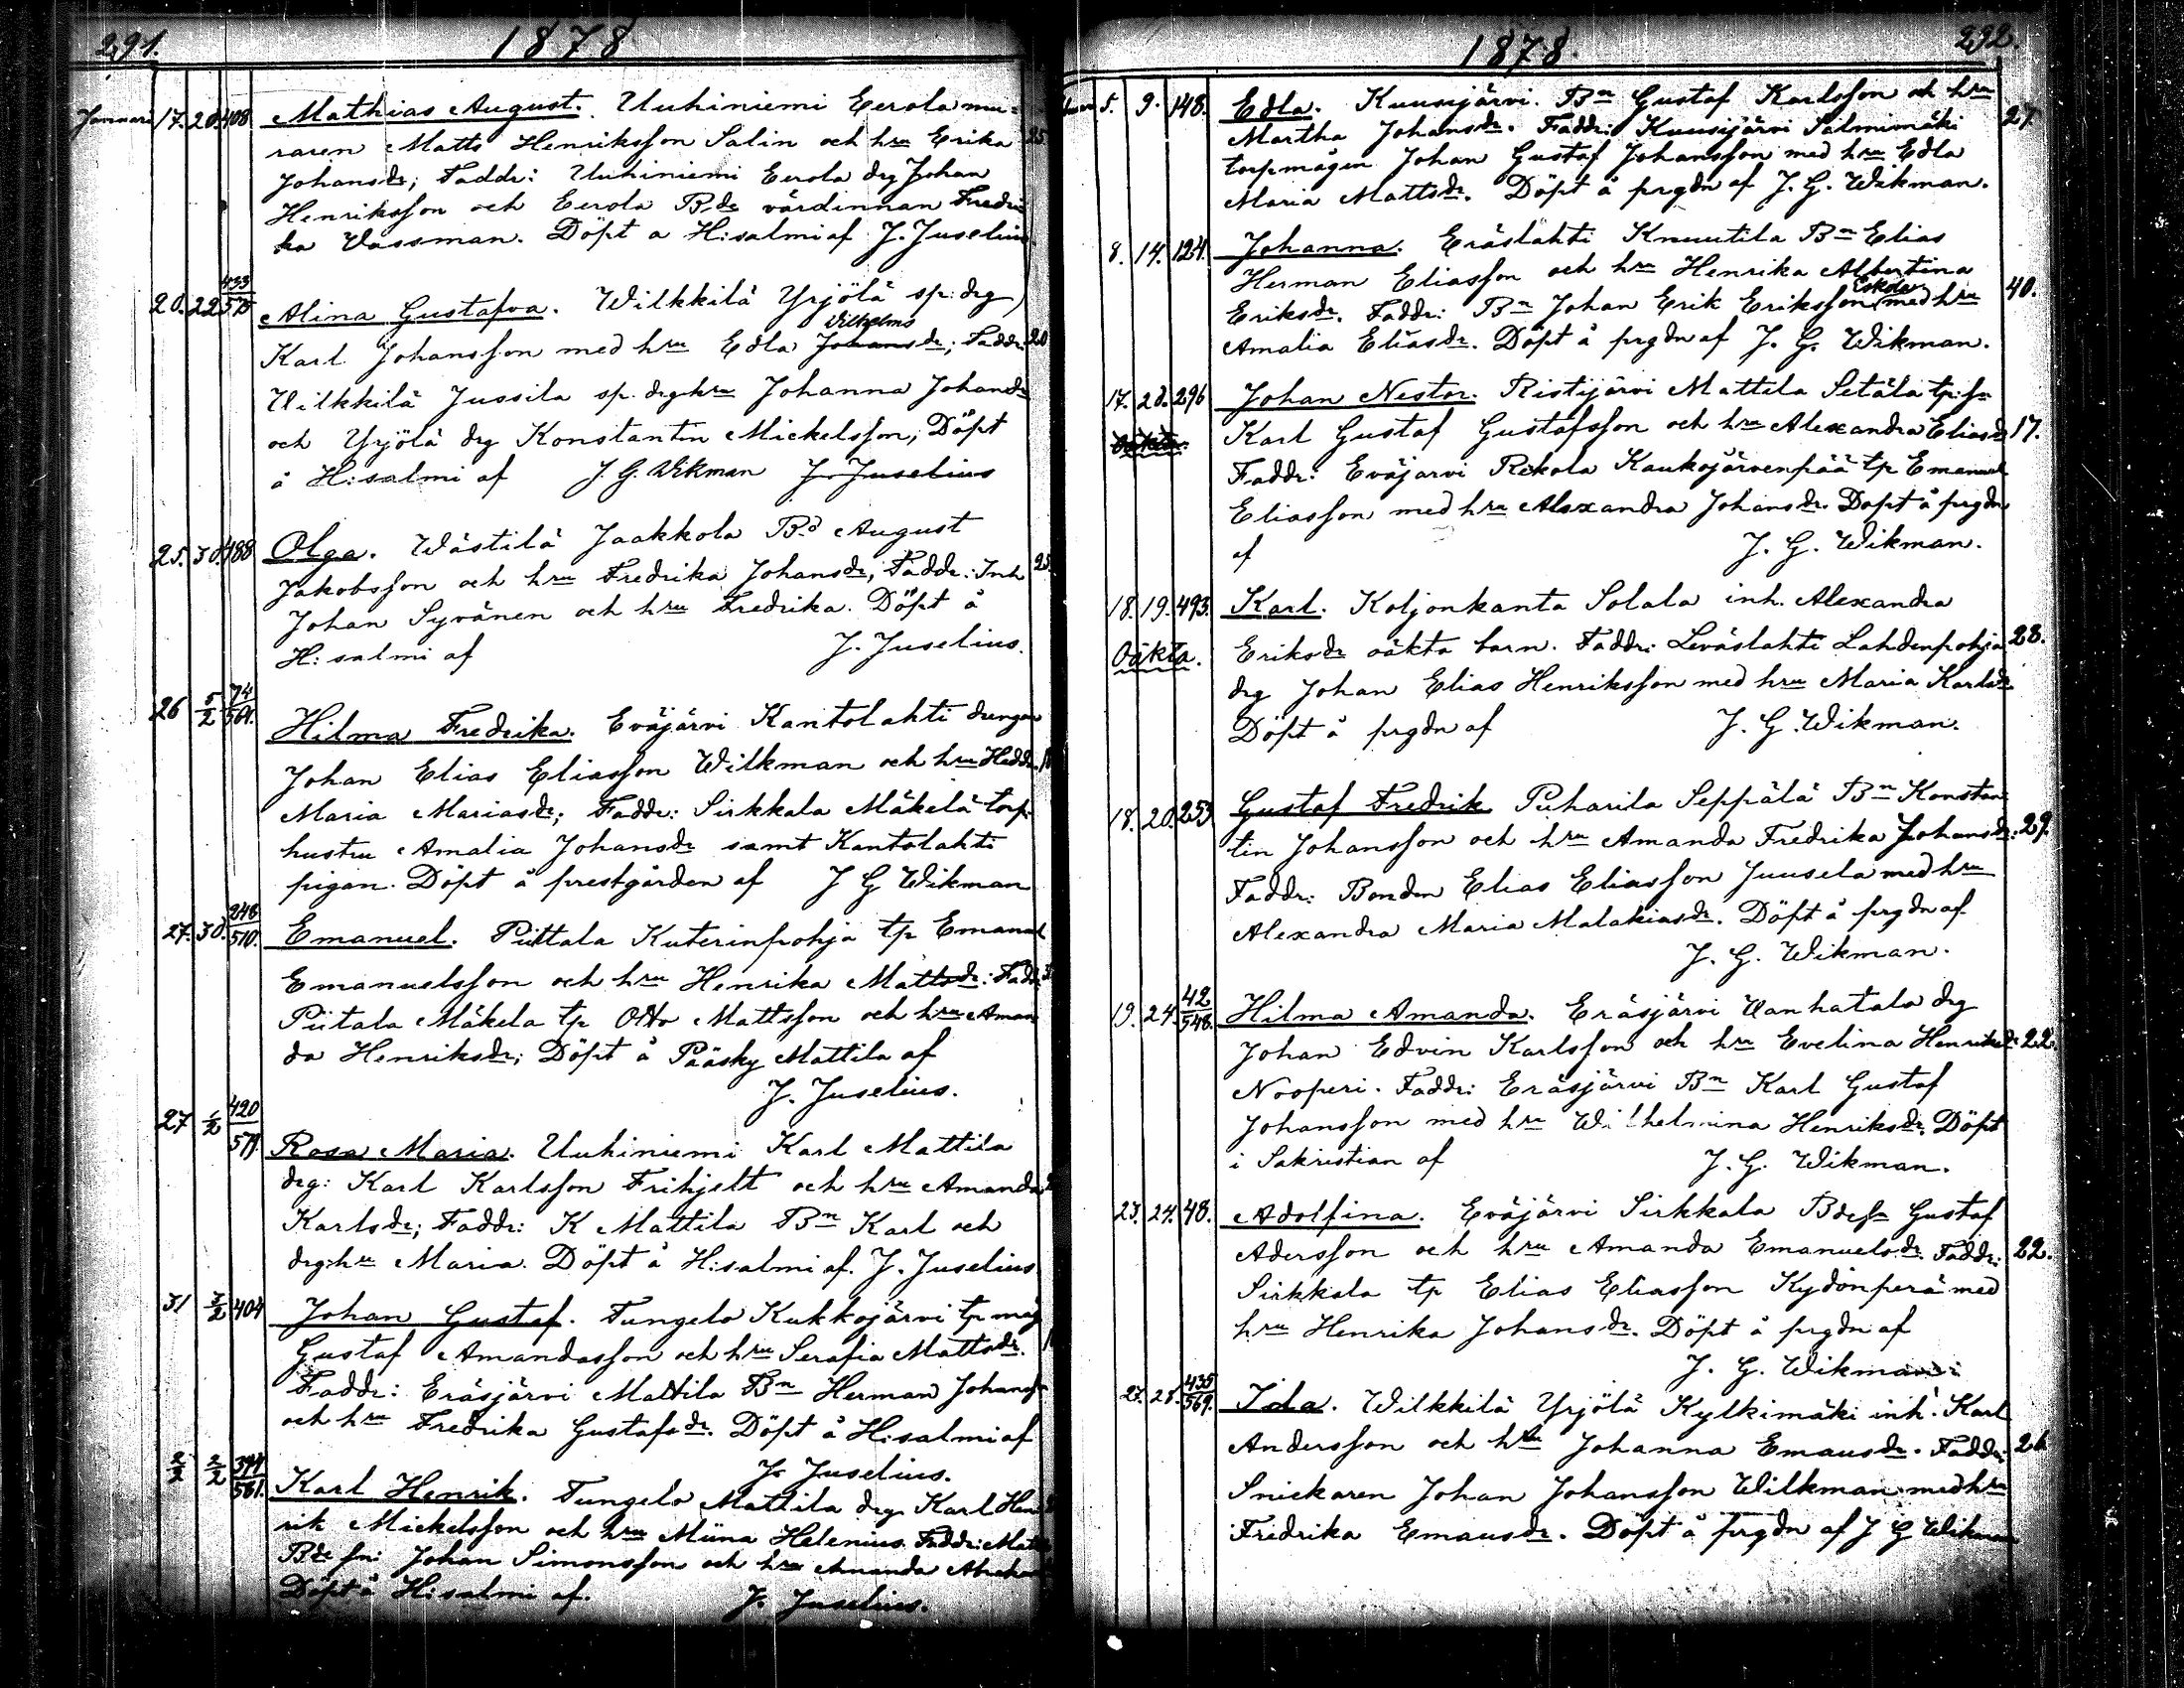 291.
1878
Januari 17. 20. 408 Mathias August. Uuhiniemi Eerola mu=
raren Matts Henriksson Salin och hru Erika 25
Johansdr; Faddr: Uuhiniemi Eerola drg Johan
Henriksson och Eerola Bde värdinnan Fredri
ka Wassman. Döpt a H:salmi af J. Juselius.
20. 22 433/575 Alina Gustafva. Wilkkilä Yrjölä sp: drg
Karl Johansson med hru Edla Johansdr; Vilhelms Faddr: 20
Wilkkilä Jussila sp. drg hru Johanna Johansdr
och Yrjölä drg Konstantin Mickelsson; Döpt
å H:salmi af J. G. Wikman J. Juselius
25. 30. 488 Olga. Wästilä Jaakkola Bd August
Jakobsson och hru Fredrika Johansdr; Faddr: Inh 25.
Johan Syvänen och hru Fredrika. Döpt å
H: salmi af J. Juselius.
26 5/2 74/564. Hilma Fredrika. Eväjärvi Kantolahti drengen
Johan Elias Eliasson Wilkman och hru Hedda
Maria Mariasdr; Faddr: Sirkkala Mäkelä torp.
hustru Amalia Johansdr samt Kantolahti
pigan. Döpt å prestgården af J G Wikman
27. 30. 248/510. Emanuel. Piittala Kuterinpohja tp Emanuel
Emanuelsson och hru Henrika Mattsdr: Faddr
Piitala Mäkela tp Otto Mattsson och hru Aman
da Henriksdr; Döpt å Pääsky Mattila af
J. Juselius.
27 1/2 420/579. Rosa Maria. Uuhiniemi Karl Mattila
drg: Karl Karlsson Frihjelt och hru Amanda
Karlsdr; Faddr: K Mattila Bn Karl och
drg:hru Maria. Döpt å H:salmi af. J. Juselius
31 3/2 404 Johan Gustaf. Tungelo Kukkojärvi tp måg
Gustaf Amandasson och hru Serafia Mattsdr.
Faddr: Eräsjärvi Mattila Bn Herman Johanss
och hru Fredrika Gustafsdr. Döpt å H:salmi af
J. Juselius.
2/2 2/2 394/561. Karl Henrik. Tungelo Mattila drg Karl Hen
rik Mickelsson och hru Miina Helenius. Faddr: Matt
Bde sn: Johan Simonsson och hru Amanda Abraham
Döpt å H:salmi af. J. Juselius.
292.
1878.
5. 9. 148. Edla. Kuusijärvi. Bn Gustaf Karlsson och hru
Martha Johansdr. Faddr: Kuusijärvi Salmimäki 27.
torpmågen Johan Gustaf Johansson med hru Edla
Maria Mattsdr. Döpt å prgdn af J. G. Wikman.
8. 14. 124. Johanna. Eräslahti Knuutila Bn Elias
Herman Eliasson och hru Henrika Albertina
Eriksdr. Faddr: Bn Johan Erik Eriksson Eskola med hru 40.
Amalia Eliasdr. Döpt å prgdn af J. G. Wikman.
17. 20. 296 Johan Nestor. Ristijärvi Mattila Setäla tp:sn
Oäkta. Karl Gustaf Gustafsson och hru Alexandra Eliasdr 17.
Faddr: Eväjarvi Rekola Kaukojärvenpää tp Emanuel
Eliasson med hru Alexandra Johansdr. Döpt å prgdn
af J. G. Wikman.
18. 19. 493. Karl. Koljonkanta Solala inh. Alexandra
Oäkta. Eriksdr oäkta barn. Faddr: Leväslahti Lahdenpohja 28.
drg Johan Elias Henriksson med hru Maria Karlsdr
Döpt å prgdn af J. G. Wikman.
18. 20. 253 Gustaf Fredrik Puharila Seppälä Bn Konstan
tin Johansson och hru Amanda Fredrika Johansdr. 29.
Faddr: Bonden Elias Eliasson Juusela med hru
Alexandra Maria Malakiasdr. Döpt å prgdn af
J. G. Wikman.
19. 24. 42/548. Hilma Amanda. Eräsjärvi Vanhatalo drg
Johan Edvin Karlsson och hru Evelina Henriksdr 22.
Nooperi. Faddr: Eräsjärvi Bn Karl Gustaf
Johansson med hru Wilhelmina Henriksdr. Döpt
i Sakristian af J. G. Wikman.
23. 24. 48. Adolfina. Eväjärvi Sirkkala Bdesn Gustaf
Adersson och hru Amanda Emanuelsdr. Faddr: 22.
Sirkkala tp Elias Eliasson Kydönperä med
hru Henrika Johansdr. Döpt å prgdn af
J. G. Wikman.
23. 28. 435/569. Ida. Wilkkilä Yrjölä Kylkimäki inh. Karl
Andersson och hru Johanna Emausdr. Faddr: 26
Snickaren Johan Johansson Wilkman med hru
Fredrika Emausdr. Döpt å prgdn af J G Wikman